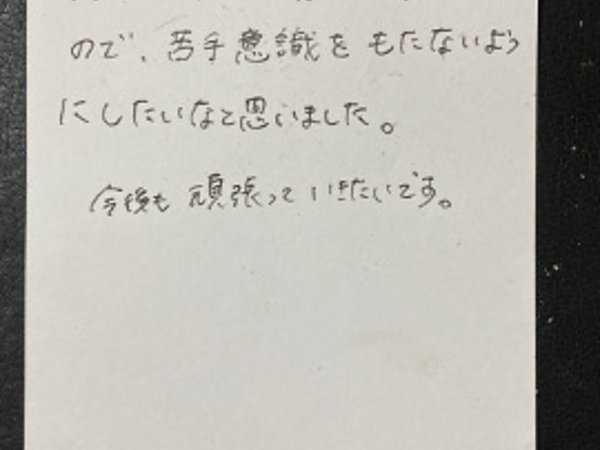 ので、苦手意識をもたないよう
にしたいなと思いました。
今後も頑張っていきたいです。